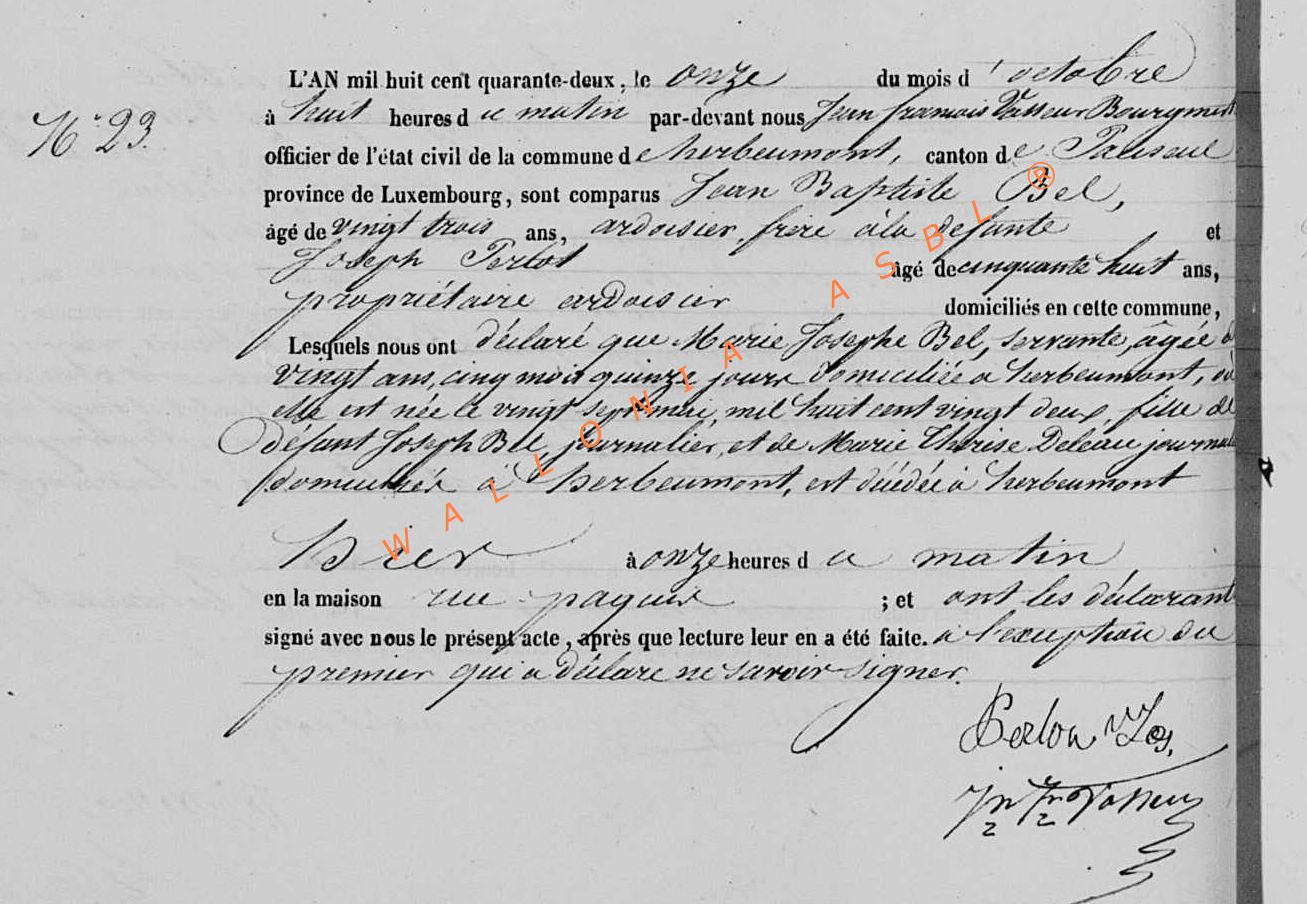 N° 23.
L'AN mil huit cent quarante-deux, le onze du mois d'octobre
à huit heures du matin par-devant nous Jean françois Vasseur Bourgmest
officier de l'état civil de la commune de herbeumont, canton de Paliseul
province de Luxembourg, sont comparus Jean Baptiste Bel,
âgé de vingt trois ans, ardoisier, frère à la defunte et
Joseph Perlot âgé de cinquante huit ans,
propriétaire ardoisier domiciliés en cette commune,
Lesquels nous ont déclaré que Marie Josephe Bel, servante, âgée de
vingt ans, cinq mois quinze jours domiciliée a herbeumont, où
elle est née le vingt sept mai, mil huit cent vingt deux, fille de
défunt Joseph Bel, journalier, et de Marie Thérèse Deleau journal
domiciliés à herbeumont, est décédée à herbeumont
hier à onze heures du matin
en la maison rue paquis ; et ont les déclarant
signé avec nous le présent acte, après que lecture leur en a été faite. a l'exception du
premier qui a déclaré ne savoir signer.
Jn Fr Vasseur
WALLONIA ASBL ®